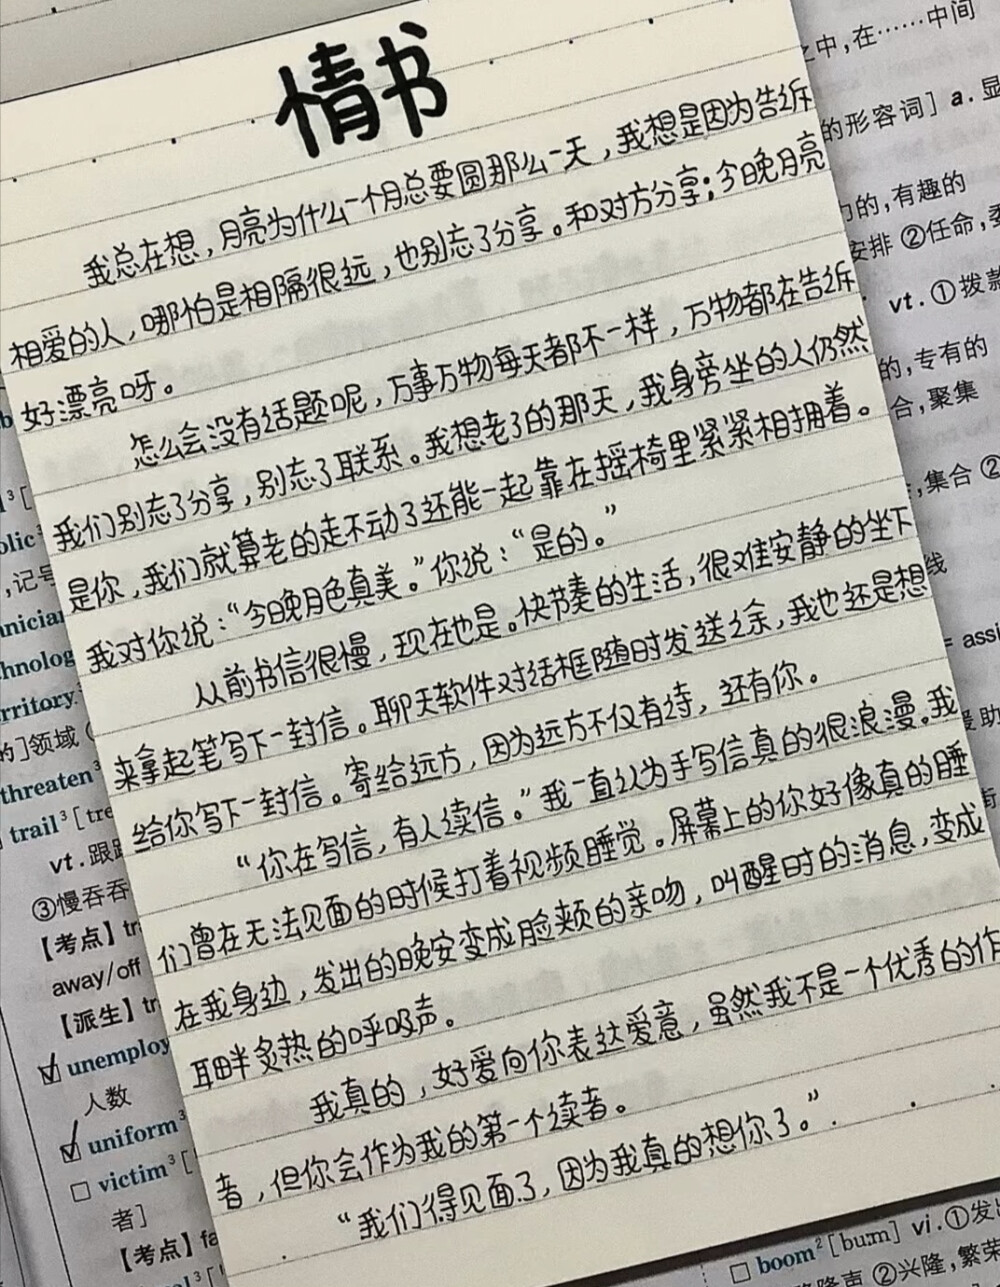 情书
我总在想，月亮为什么一个月总要圆那么一天，我想是因为告诉
相爱的人，哪怕是相隔很远，也别忘了分享。和对方分享；今晚月亮
好漂亮呀。
怎么会没有话题呢，万事万物每天都不一样，万物都在告诉
我们别忘了分享，别忘了联系。我想老了的那天，我身旁坐的人仍然
是你，我们就算老的走不动了还能一起靠在摇椅里紧紧相拥着。
我对你说：“今晚月色真美。”你说：“是的。”
从前书信很慢，现在也是。快节奏的生活，很难安静的坐下
来拿起笔写下一封信。聊天软件对话框随时发送之余，我也还是想
给你写下一封信。寄给远方，因为远方不仅有诗，还有你。
“你在写信，有人读信。”我一直认为手写信真的很浪漫。我
们曾在无法见面的时候打着视频睡觉。屏幕上的你好像真的睡
在我身边，发出的晚安变成脸颊的亲吻，叫醒时的消息，变成
耳畔炙热的呼吸声。
我真的，好爱向你表达爱意，虽然我不是一个优秀的作
者，但你会作为我的第一个读者。
“我们得见面了，因为我真的想你了。”.
之中，在……中间
的形容词］a．显
的，有趣的
安排 ②任命，委
vt．①拨款
的，专有的
合，聚集
，集合 ②
线
= assi
援助
olic³
，记号
nician
hnolog
rritory
的］领域
threaten³
trail³ [tre
vt．跟踪
③慢吞吞
【考点】tr
away/off
【派生】tr
unemploy
人数
uniform³
victim³ [
者］
【考点】fa
boom² [buːm] vi．①发出
隆隆声 ②兴隆，繁荣